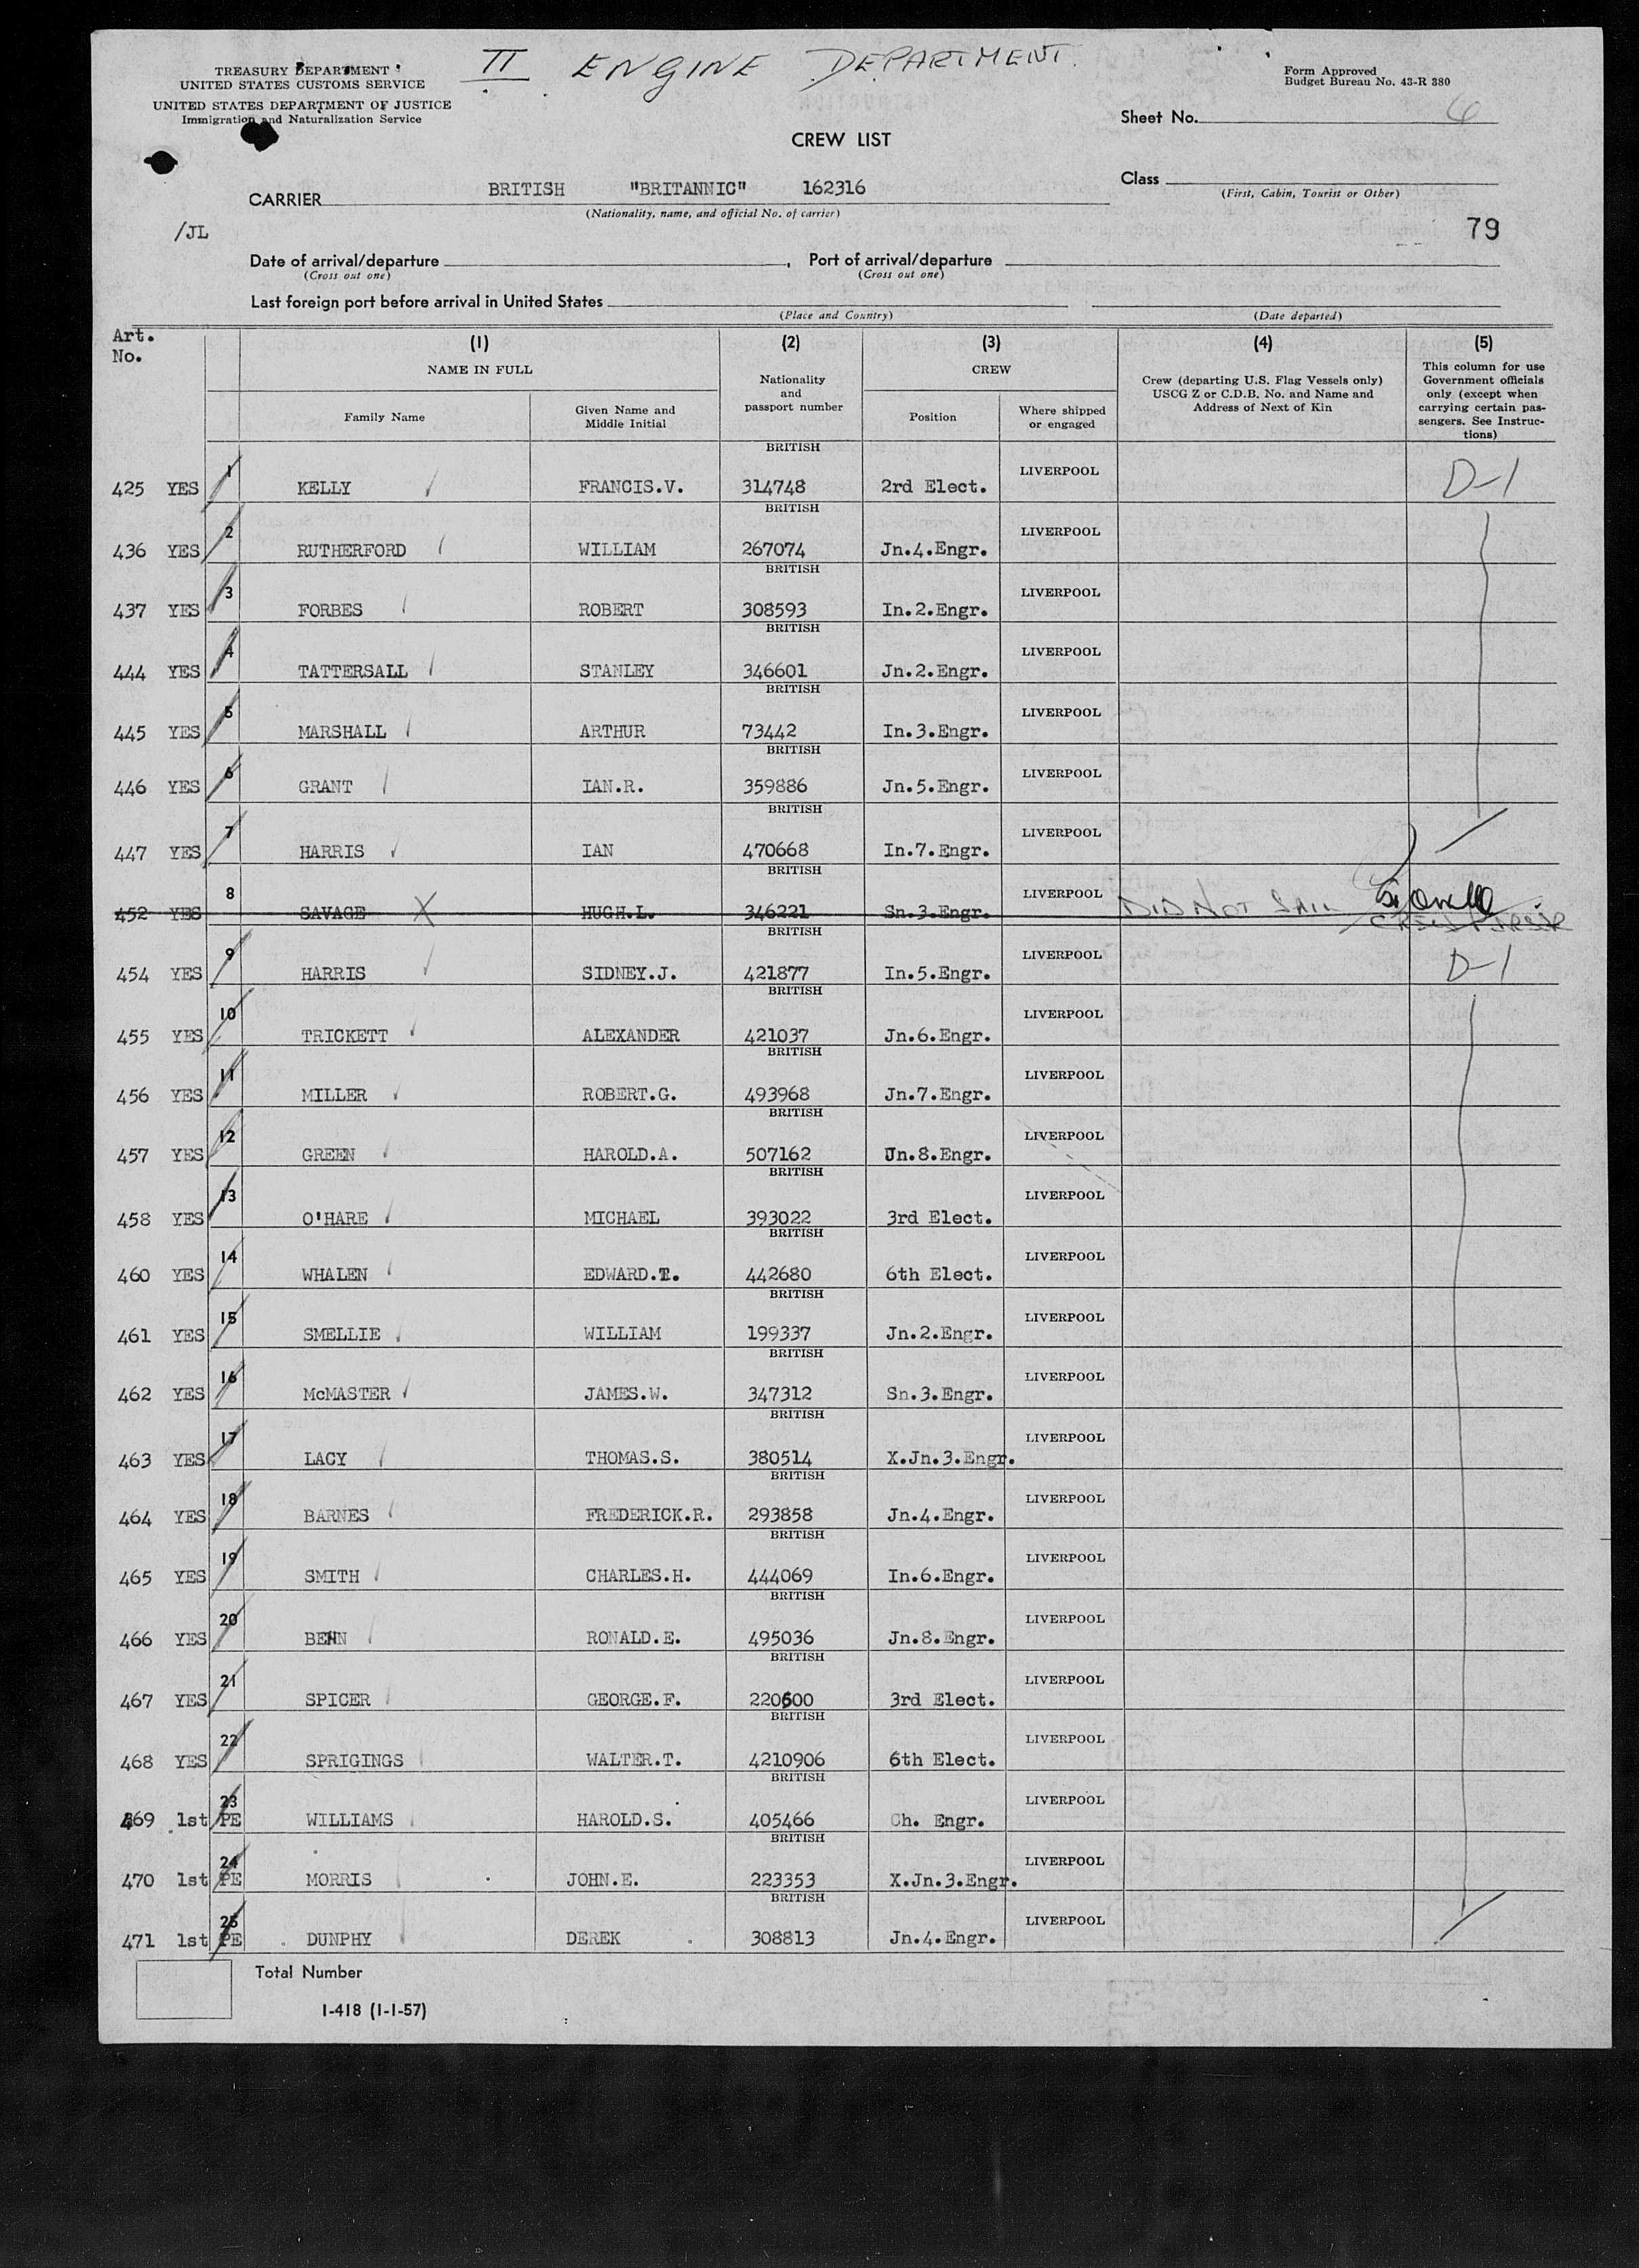 II ENGINE DEPARTMENT
TREASURY DEPARTMENT
UNITED STATES CUSTOMS SERVICE
UNITED STATES DEPARTMENT OF JUSTICE
Immigration and Naturalization Service
Form Approved
Budget Bureau No. 43-R 380
Sheet No. 6
CREW LIST
CARRIER BRITISH "BRITANNIC" 162316
(Nationality, name, and official No. of carrier)
Class
(First, Cabin, Tourist or Other)
/JL
79
Date of arrival/departure , Port of arrival/departure
(Cross out one) (Cross out one)
Last foreign port before arrival in United States
(Place and Country) (Date departed)
Art. No.
(1) (2) (3) (4) (5)
NAME IN FULL
Family Name
Given Name and Middle Initial
Nationality and passport number
CREW
Position
Where shipped or engaged
Crew (departing U.S. Flag Vessels only) USCG Z or C.D.B. No. and Name and Address of Next of Kin
This column for use Government officials only (except when carrying certain passengers. See Instructions)
425 YES 1 KELLY FRANCIS.V. BRITISH 314748 2rd Elect. LIVERPOOL D-1
436 YES 2 RUTHERFORD WILLIAM BRITISH 267074 Jn.4.Engr. LIVERPOOL
437 YES 3 FORBES ROBERT BRITISH 308593 In.2.Engr. LIVERPOOL
444 YES 4 TATTERSALL STANLEY BRITISH 346601 Jn.2.Engr. LIVERPOOL
445 YES 5 MARSHALL ARTHUR BRITISH 73442 In.3.Engr. LIVERPOOL
446 YES 6 GRANT IAN.R. BRITISH 359886 Jn.5.Engr. LIVERPOOL
447 YES 7 HARRIS IAN BRITISH 470668 In.7.Engr. LIVERPOOL
452 YES 8 SAVAGE X HUGH.L. BRITISH 346221 Sn.3.Engr. LIVERPOOL DID NOT SAIL
454 YES 9 HARRIS SIDNEY.J. BRITISH 421877 In.5.Engr. LIVERPOOL D-1
455 YES 10 TRICKETT ALEXANDER BRITISH 421037 Jn.6.Engr. LIVERPOOL
456 YES 11 MILLER ROBERT.G. BRITISH 493968 Jn.7.Engr. LIVERPOOL
457 YES 12 GREEN HAROLD.A. BRITISH 507162 Jn.8.Engr. LIVERPOOL
458 YES 13 O'HARE MICHAEL BRITISH 393022 3rd Elect. LIVERPOOL
460 YES 14 WHALEN EDWARD.T. BRITISH 442680 6th Elect. LIVERPOOL
461 YES 15 SMELLIE WILLIAM BRITISH 199337 Jn.2.Engr. LIVERPOOL
462 YES 16 McMASTER JAMES.W. BRITISH 347312 Sn.3.Engr. LIVERPOOL
463 YES 17 LACY THOMAS.S. BRITISH 380514 X.Jn.3.Engr. LIVERPOOL
464 YES 18 BARNES FREDERICK.R. BRITISH 293858 Jn.4.Engr. LIVERPOOL
465 YES 19 SMITH CHARLES.H. BRITISH 444069 In.6.Engr. LIVERPOOL
466 YES 20 BENN RONALD.E. BRITISH 495036 Jn.8.Engr. LIVERPOOL
467 YES 21 SPICER GEORGE.F. BRITISH 220600 3rd Elect. LIVERPOOL
468 YES 22 SPRIGINGS WALTER.T. BRITISH 4210906 6th Elect. LIVERPOOL
469 1st PE 23 WILLIAMS HAROLD.S. BRITISH 405466 Ch. Engr. LIVERPOOL
470 1st PE 24 MORRIS JOHN.E. BRITISH 223353 X.Jn.3.Engr. LIVERPOOL
471 1st PE 25 DUNPHY DEREK BRITISH 308813 Jn.4.Engr. LIVERPOOL
Total Number
I-418 (1-1-57)